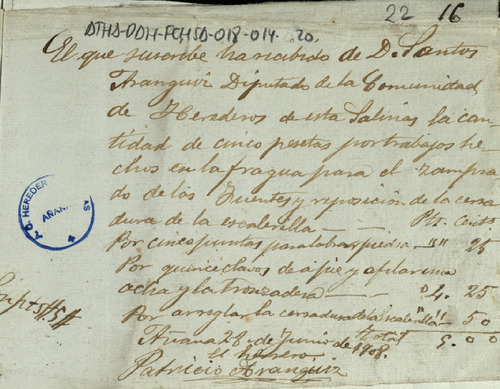 22 16
ATHA-DDH-FCHSD-018-014-20.
El que suscribe ha recibido de D. Santos
Aranguiz Diputado de la Comunidad
de Herederos de esta Salinas la can
tidad de cinco pesetas por trabajos he
chos en la fragua para el zampea
do de las Fuentes y reposición de la cerra
dura de la escalerilla — Pts. Cents
Por cinco puntas para labrar piedra — " " 25
Por quince clavos de a pie y afilar una
acha y la tronzadera — " 4. 25
Por arreglar la cerradura de la escalerilla " " 50
Total 5.00
Añana 28 de Junio de 1908.
El herrero
Patricio Aranguiz
HEREDER
AÑANA